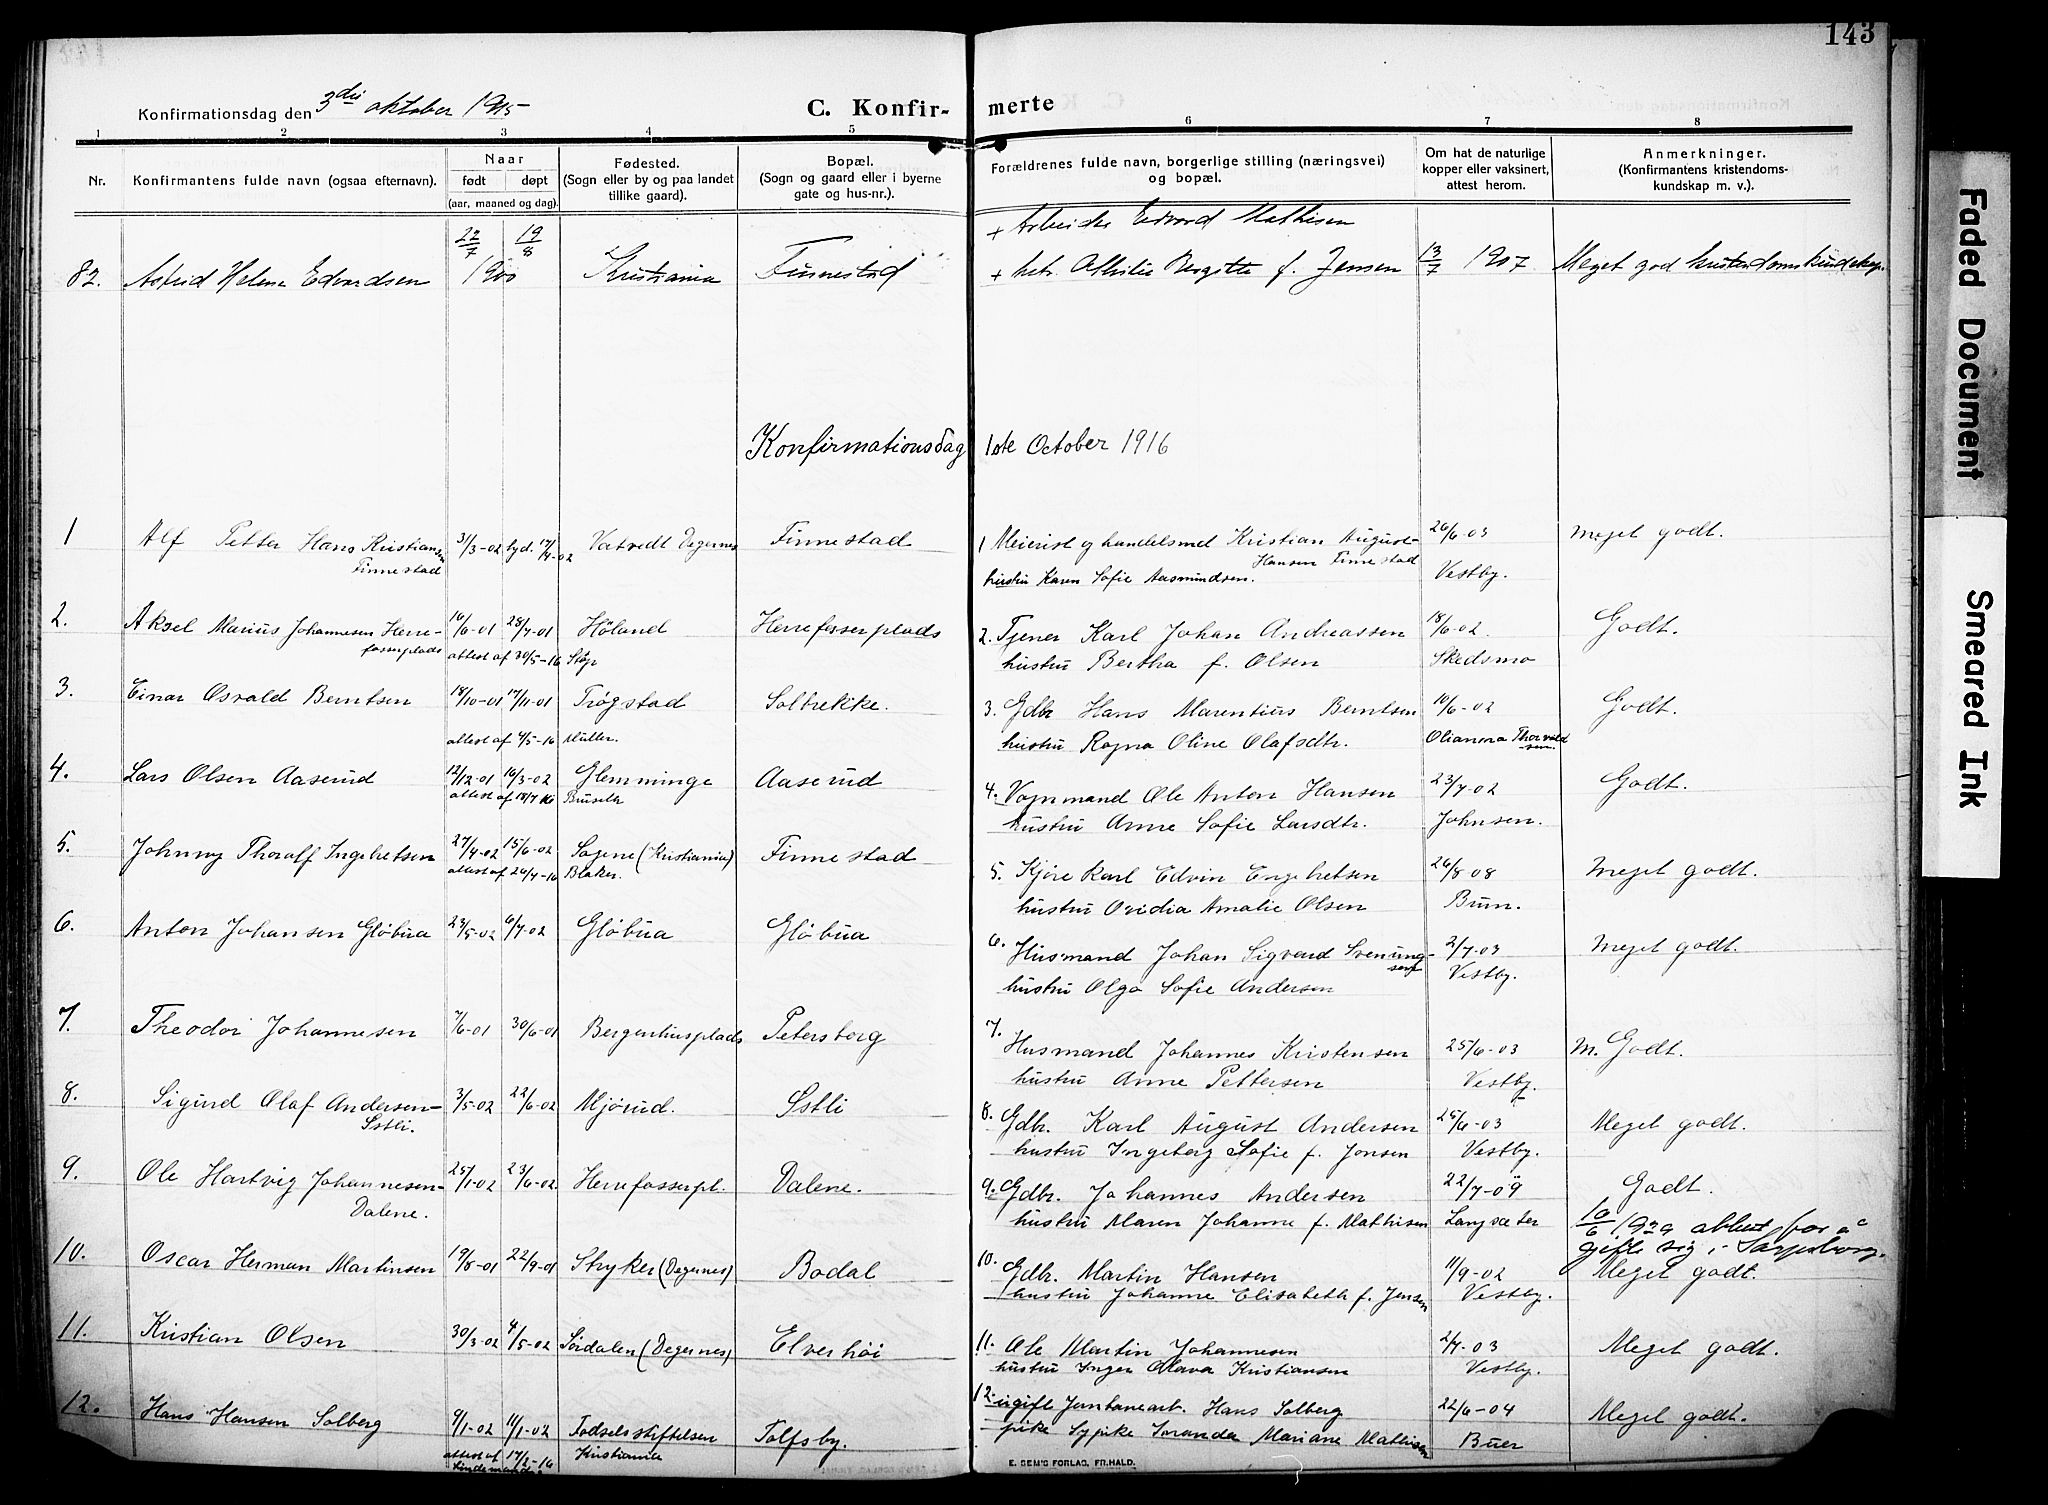 143
Konfirmationsdag den 3die oktober 1915
C. Konfir-
merte
1 2 3 4 5 6 7 8
Nr.
Konfirmantens fulde navn (ogsaa efternavn).
Naar
født døpt
(aar, maaned og dag).
Fødested.
(Sogn eller by og paa landet
tillike gaard).
Bopæl.
(Sogn og gaard eller i byerne
gate og hus-nr.).
Forældrenes fulde navn, borgerlige stilling (næringsvei)
og bopæl.
Om hat de naturlige
kopper eller vaksinert,
attest herom.
Anmerkninger.
(Konfirmantens kristendoms-
kundskap m. v.).
+ Arbeider Edvard Mathisen
82. Astrid Helene Edvardsen 22/7 19/8 1900 Kristiania Finnestad + hstr. Bergitte f. Jensen 13/7 1907 Meget god kristendomskundskap.
Konfirmationsdag 1ste October 1916
1 Alf Petter Hans Kristiansen 31/3-02 17/4-02 Vatvedt Degernes Finnestad 1 Meierist og handelsmd Kristian August 26/6-03 Meget godt.
Finnestad Hansen Finnestad
hustru Karen Sofie Aasmundsen. Vestby.
2. Aksel Marius Johannesen Herre- 16/6-01 28/7-01 Høland Herrefosserplads 2. Tjener Karl Johan Andreassen 18/6-02. Godt.
fosserplads attest af 30/5-16 hustru Bertha f. Olsen Skedsmo
3. Einar Osvald Berntsen 18/10-01 17/11-01 Trøgstad Solbrekke. 3. Gdbr Hans Marentius Berntsen 10/6-02 Godt.
attest af 4/5-16 Müller. hustru Ragna Oline Olafsdtr. Olianna Thorvald
sen.
4. Lars Olsen Aaserud 12/12-01 16/3-02 Glemminge Aaserud 4. Vognmand Ole Anton Hansen 23/7-02 Godt.
attest af 18/7 16 hustru Anne Sofie Larsdtr. Johnsen.
5. Johnny Thoralf Ingebretsen 27/4-02 15/6-02 Sagene (Kristiania) Finnestad 5. Kjøre Karl Edvin Engebretsen 26/8-08 Meget godt.
attest af 26/7-16 Blaker. hustru Ovidia Amalie Olsen Buer.
6. Anton Johansen Gløbua 23/5-02 6/7-02 Gløbua Gløbua 6. Husmand Johan Sigvard Svenung- 2/7-03 Meget godt.
sen
hustru Olga Sofie Andersen Vestby.
7. Theodor Johannesen 7/6-01 30/6-01 Bergenhusplads Petersborg 7. Husmand Johannes Kristensen 25/6-03 M. Godt.
hustru Anne Pettersen Vestby.
8. Sigurd Olaf Andersen- 3/5-02 22/6-02 Mjørud. Sstli 8. Gdbr. Karl August Andersen 25/6-03 Meget godt.
Sstli. hustru Ingeborg Sofie f. Jonsen Vestby.
9. Ole Hartvig Johannesen- 25/1-02 23/6-02 Herrefosserpl. Dalene. 9. Gdbr. Johannes Andersen 22/7-09 Godt.
Dalene. hustru Maren Johanne f. Mathisen Langsæter 10/6 1929 attest for å
gifte sig i Sarpsborg.
10. Oscar Herman Martinsen 19/8-01 22/9-01 Stryker (Degernes) Bodal 10. Gdbr. Martin Hansen 11/9-02 Meget godt.
hustru Johanne Elisabeth f. Jensen Vestby.
11. Kristian Olsen 30/3-02 4/5-02 Sørdalen (Degernes) Elverhöi 11. Ole Martin Johannesen 2/7-03 Meget godt.
hustru Inger Olava Kristiansen Vestby.
12. Hans Hansen Solberg 9/1-02 11/1-02 Fødselsstiftelsen Tolfsby. 12. ugift Jernbanearb. Hans Solberg 22/6-04 Meget godt.
attest af 17/2-16 Kristiania pike Sypike Mariane Mathisen Buer
E. SEM'S FORLAG, FR.HALD.
Faded Document
Smeared Ink